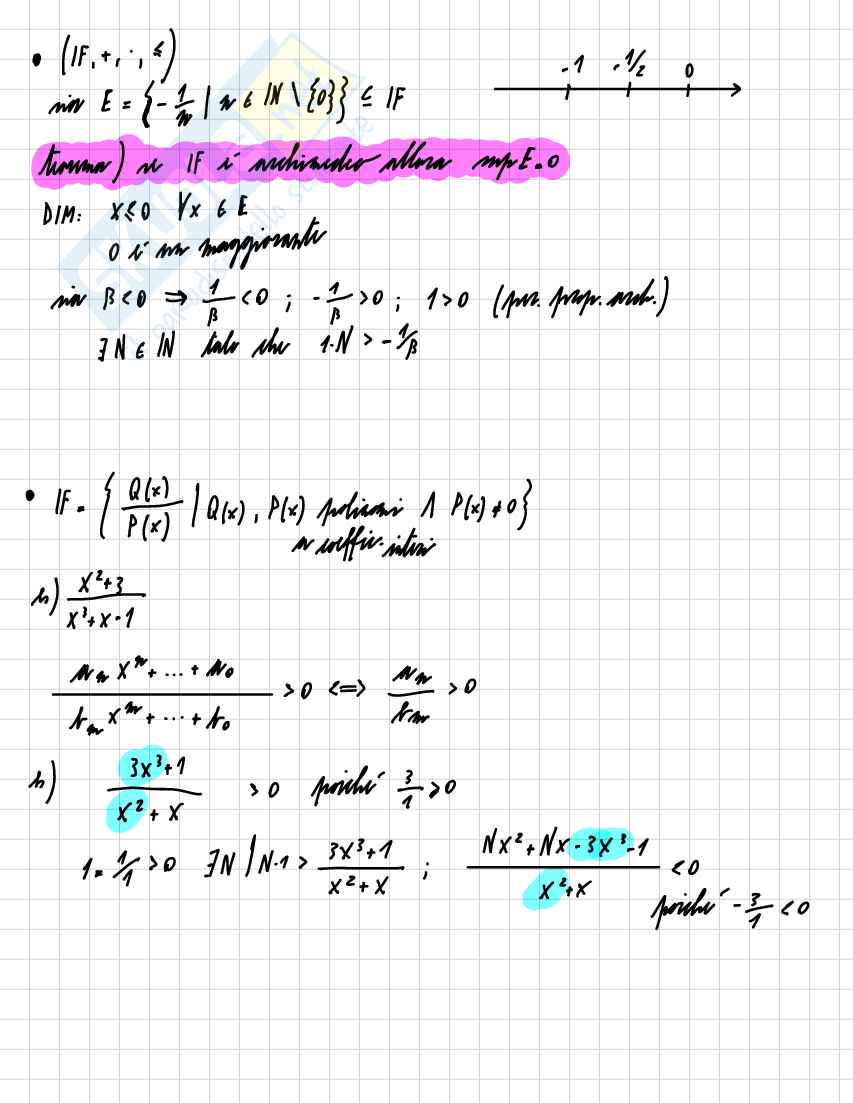 • (IF, +, ·, ≤)
-1 -1/2 0
sia E = {-1/n | n ∈ IN \ {0}} ⊆ IF
teorema) se IF è archimedeo allora sup E = 0
DIM: x ≤ 0 ∀x ∈ E
0 è un maggiorante
sia β < 0 ⇒ 1/β < 0 ; -1/β > 0 ; 1 > 0 (per. prop. arch.)
∃ N ∈ IN tale che 1·N > -1/β
• IF = { Q(x)/P(x) | Q(x), P(x) polinomi ∧ P(x) ≠ 0 }
a coeffic. interi
es) (x²+3)/(x³+x-1)
(aₙxⁿ + ... + a₀)/(bₘxᵐ + ... + b₀) > 0 <=> aₙ/bₘ > 0
es) (3x³+1)/(x²+x) > 0 poiché 3/1 > 0
1 = 1/1 > 0 ∃N | N·1 > (3x³+1)/(x²+x) ; (Nx²+Nx-3x³-1)/(x²+x) < 0
poiché -3/1 < 0